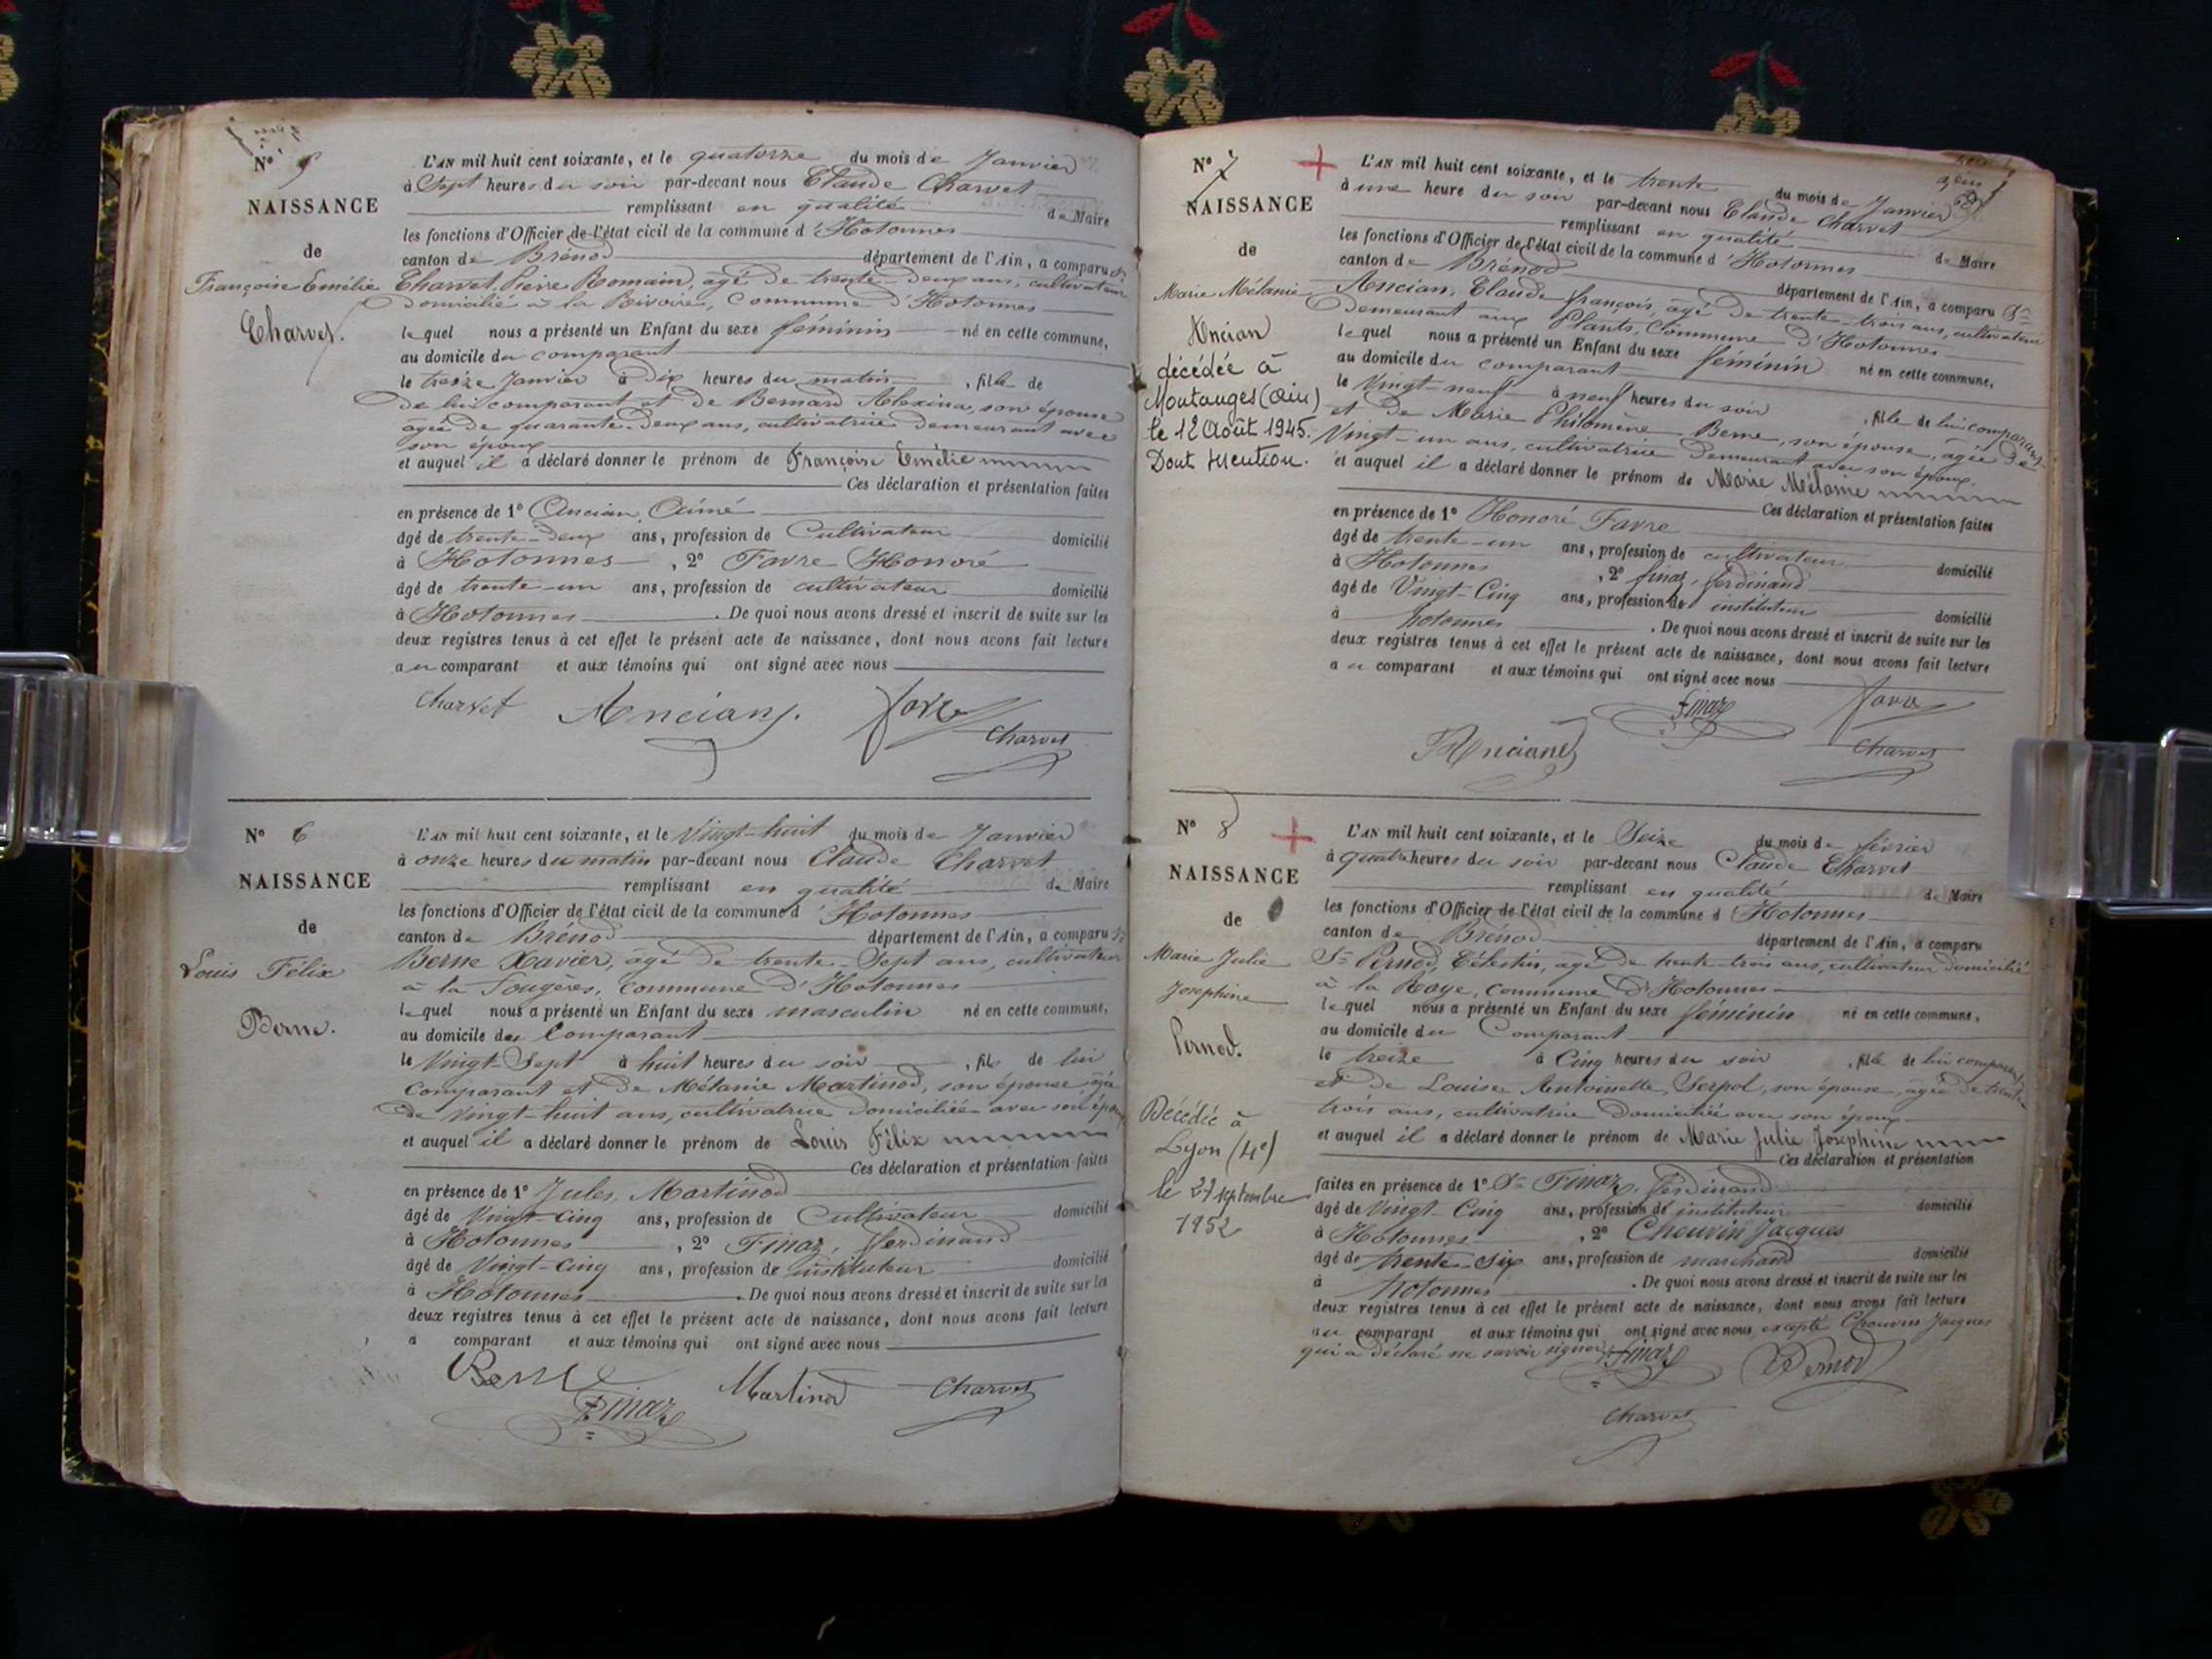 N° 5
NAISSANCE
de
Françoise Emélie
Charvet.
L'AN mil huit cent soixante, et le quatorze du mois de Janvier
à Sept heures du soir par-devant nous Claude Charvet
remplissant en qualité de Maire
les fonctions d'Officier de l'état civil de la commune d'Hotonnes
canton de Brénod département de l'Ain, a comparu Sr
Charvet Pierre Romain, âgé de trente-deux ans, cultivateur
domicilié à la Rivoire, Commune d'Hotonnes
lequel nous a présenté un Enfant du sexe féminin né en cette commune,
au domicile du comparant
le treize Janvier à Dix heures du matin, fille de
De lui comparant et de Bernard Alexina, son épouse
agée de quarante-deux ans, cultivatrice demeurant avec
son époux
et auquel il a déclaré donner le prénom de Françoise Emélie
Ces déclaration et présentation faites
en présence de 1° Ancian Aimé
âgé de trente-deux ans, profession de Cultivateur domicilié
à Hotonnes, 2° Favre Honoré
âgé de trente-un ans, profession de cultivateur domicilié
à Hotonnes. De quoi nous avons dressé et inscrit de suite sur les
deux registres tenus à cet effet le présent acte de naissance, dont nous avons fait lecture
au comparant et aux témoins qui ont signé avec nous
Charvet Ancian Favre
Charvet
N° 6
NAISSANCE
de
Louis Félix
Berne.
L'AN mil huit cent soixante, et le Vingt-huit du mois de Janvier
à onze heures du matin par-devant nous Claude Charvet
remplissant en qualité de Maire
les fonctions d'Officier de l'état civil de la commune d'Hotonnes
canton de Brénod département de l'Ain, a comparu Sr
Berne Xavier, âgé de trente-Sept ans, cultivateur
à la Fougères, Commune d'Hotonnes
lequel nous a présenté un Enfant du sexe masculin né en cette commune,
au domicile du Comparant
le Vingt-Sept à huit heures du soir, fils de lui
Comparant et de Mélanie Martinod, son épouse agée
de Vingt-huit ans, cultivatrice domiciliée avec son époux
et auquel il a déclaré donner le prénom de Louis Félix
Ces déclaration et présentation faites
en présence de 1° Jules, Martinod
âgé de Vingt-Cinq ans, profession de Cultivateur domicilié
à Hotonnes, 2° Finaz, Ferdinand
âgé de Vingt-Cinq ans, profession de instituteur domicilié
à Hotonnes. De quoi nous avons dressé et inscrit de suite sur les
deux registres tenus à cet effet le présent acte de naissance, dont nous avons fait lecture
a comparant et aux témoins qui ont signé avec nous
Berne Martinod Charvet
Finaz
N° 7
NAISSANCE
de
Marie Mélanie
Ancian
décédée à
Montanges (Ain)
le 12 Août 1945.
Dont Mention.
L'AN mil huit cent soixante, et le trente du mois de Janvier
à une heure du soir par-devant nous Claude Charvet
remplissant en qualité de Maire
les fonctions d'Officier de l'état civil de la commune d'Hotonnes
canton de Brénod département de l'Ain, a comparu Sr
Ancian, Claude françois, âgé de trente-trois ans, cultivateur
demeurant aux Plants, Commune d'Hotonnes
lequel nous a présenté un Enfant du sexe féminin né en cette commune,
au domicile du comparant
le Vingt-neuf à neuf heures du soir, fille de lui comparant
et de Marie Philomène Berne, son épouse, agée de
Vingt-un ans, cultivatrice Demeurant avec son époux.
et auquel il a déclaré donner le prénom de Marie Mélanie
Ces déclaration et présentation faites
en présence de 1° Honoré Favre
âgé de trente-un ans, profession de cultivateur domicilié
à Hotonnes, 2° finaz, ferdinand
âgé de Vingt-Cinq ans, profession de instituteur domicilié
à hotonnes. De quoi nous avons dressé et inscrit de suite sur les
deux registres tenus à cet effet le présent acte de naissance, dont nous avons fait lecture
au comparant et aux témoins qui ont signé avec nous
Finaz Favre
Ancian Charvet
N° 8
NAISSANCE
de
Marie Julie
Josephine
Pernod.
Décédée à
Lyon (4e)
le 27 septembre
1952
L'AN mil huit cent soixante, et le Seize du mois de février
à quatre heures du soir par-devant nous Claude Charvet
remplissant en qualité de Maire
les fonctions d'Officier de l'état civil de la commune d'Hotonnes
canton de Brénod département de l'Ain, a comparu
Sr Pernod, Célestin, âgé de trente-trois ans, cultivateur domicilié
à la Raye, Commune d'Hotonnes
lequel nous a présenté un Enfant du sexe féminin né en cette commune,
au domicile du Comparant
le treize à Cinq heures du soir, fille de lui comparant
et de Louise Antoinette, Serpol, son épouse, agée de trente
trois ans, cultivatrice domiciliée avec son époux
et auquel il a déclaré donner le prénom de Marie Julie Josephine
Ces déclaration et présentation
faites en présence de 1° Sr Finaz, Ferdinand
âgé de Vingt-Cinq ans, profession de instituteur domicilié
à Hotonnes, 2° Chouvin Jacques
âgé de trente-six ans, profession de marchand domicilié
à hotonnes. De quoi nous avons dressé et inscrit de suite sur les
deux registres tenus à cet effet le présent acte de naissance, dont nous avons fait lecture
au comparant et aux témoins qui ont signé avec nous excepté Chouvin Jacques
qui a déclaré ne savoir signer. Finaz Pernod
Charvet